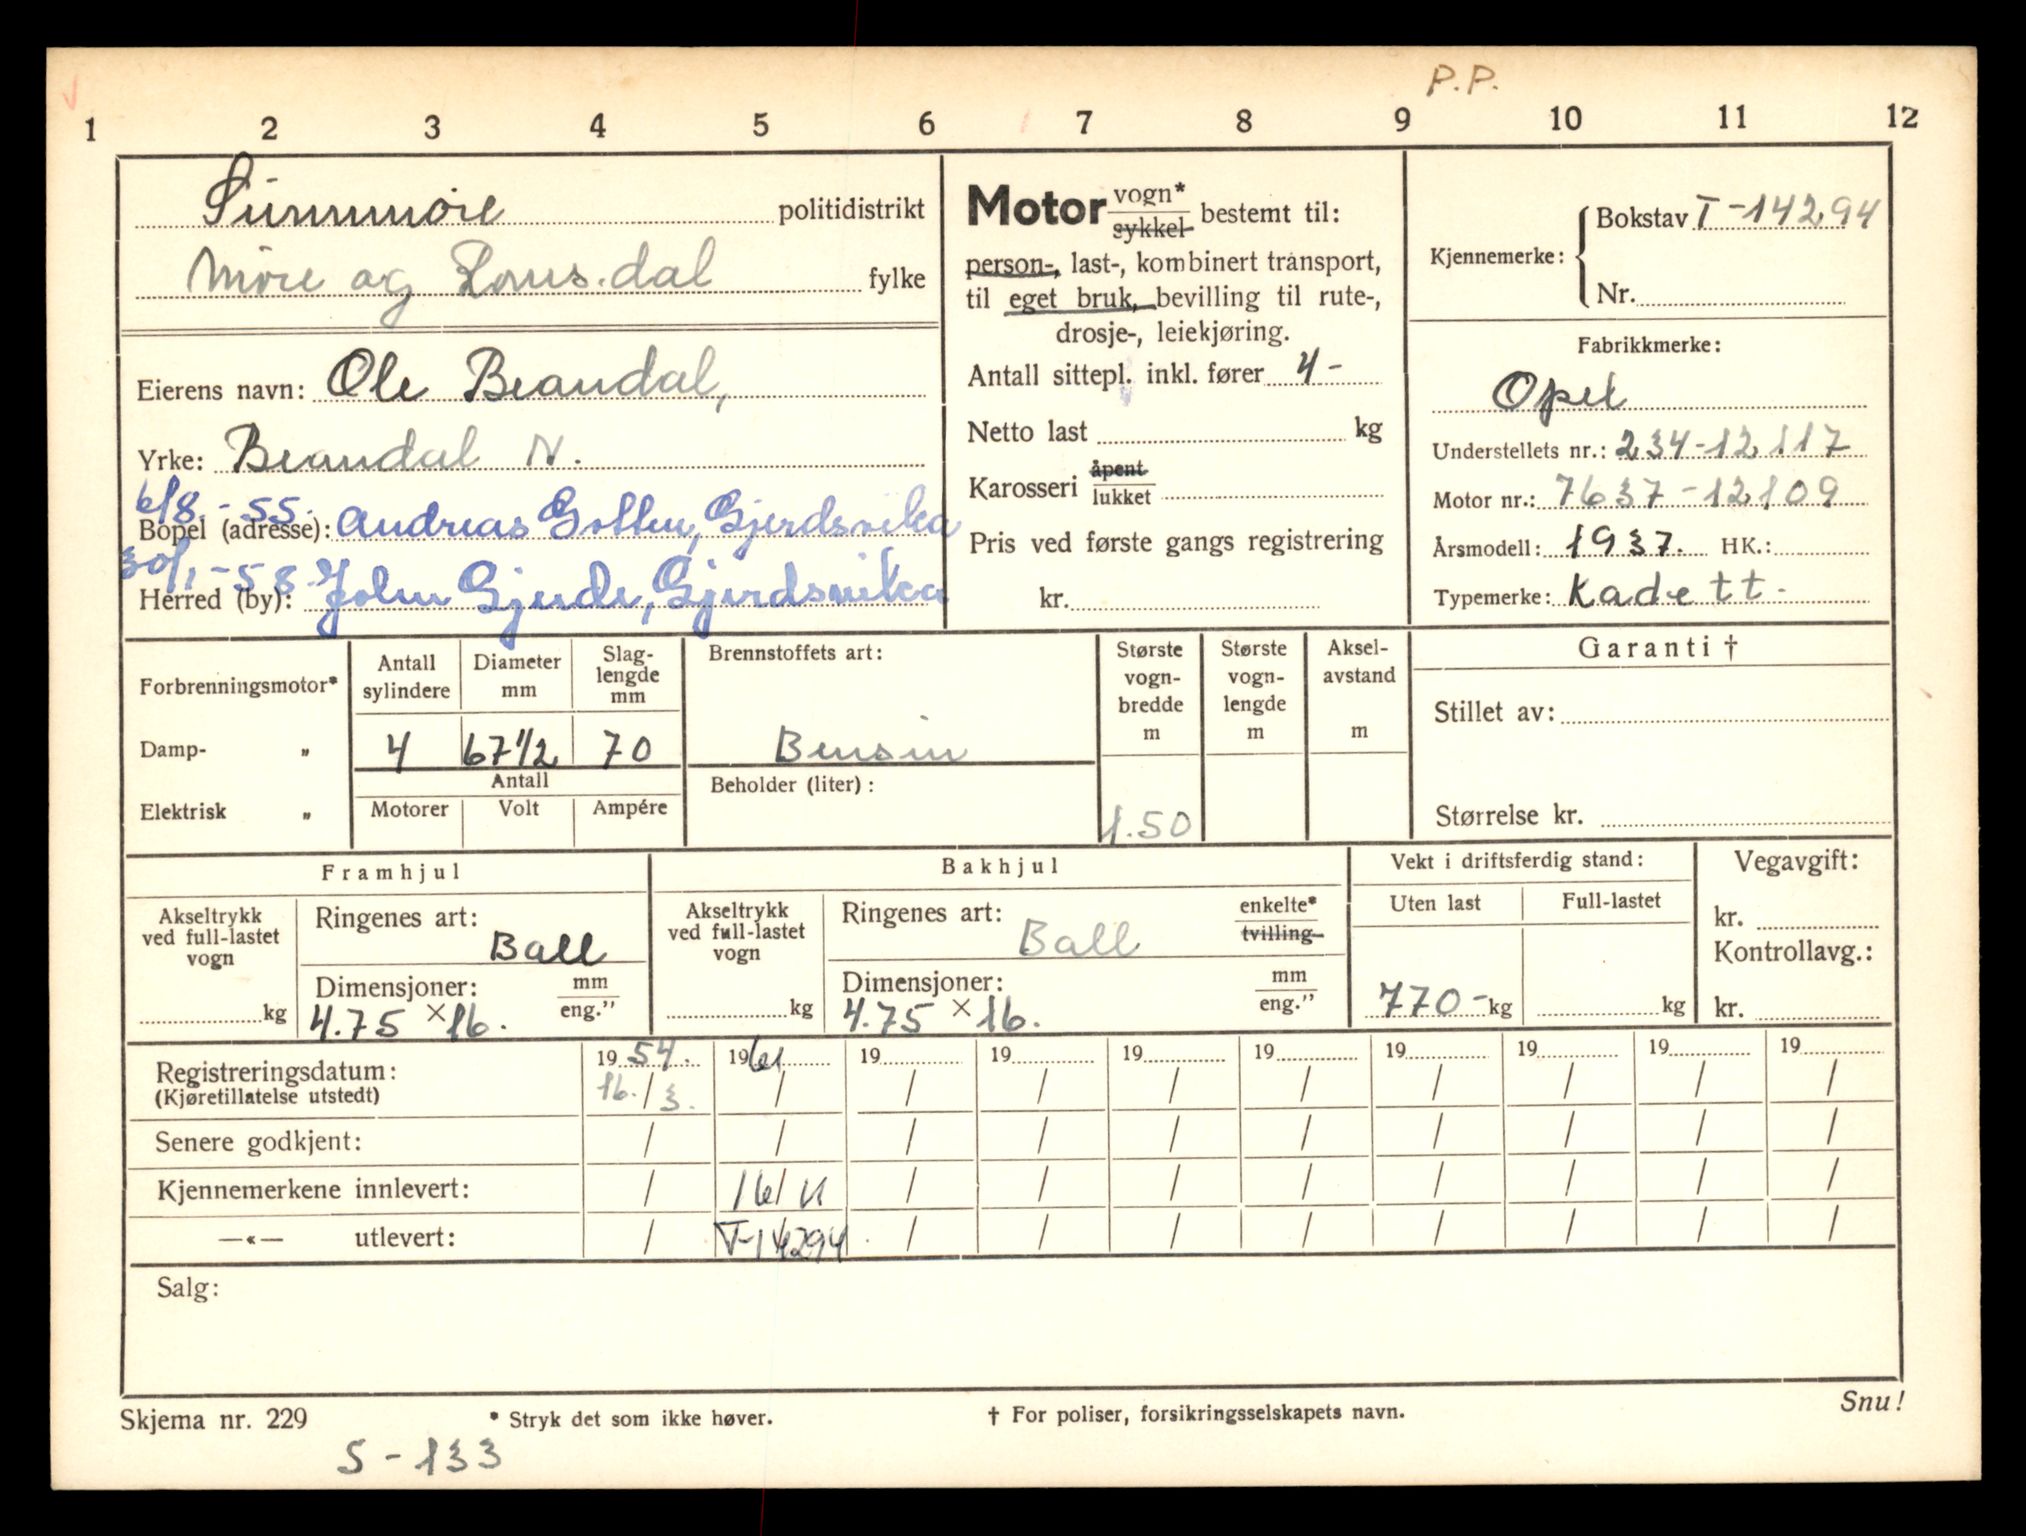 P.P.
1 2 3 4 5 6 7 8 9 10 11 12
Sunnmøre politidistrikt
Møre og Romsdal fylke
Eierens navn: Ole Brandal,
Yrke: Brandal N.
6/8.-55.
Bopel (adresse): Andreas Gotten, Gjerdsvika
30/1-58
Herred (by): John Gjerde, Gjerdsvika
Motor vogn* sykkel bestemt til:
person-, last-, kombinert transport,
til eget bruk, bevilling til rute-,
drosje-, leiekjøring.
Antall sittepl. inkl. fører 4-
Netto last kg
Karosseri åpent lukket
Pris ved første gangs registrering
kr.
Kjennemerke: Bokstav T-14294
Nr.
Fabrikkmerke:
Opel
Understellets nr.: 234-12117
Motor nr.: 7637-12109
Årsmodell: 1937. HK.:
Typemerke: Kadett-
Forbrenningsmotor*
Damp- „
Elektrisk „
Antall sylindere Diameter mm Slaglengde mm
4 67 1/2 70
Antall
Motorer Volt Ampére
Brennstoffets art:
Bensin
Beholder (liter):
Største vognbredde m
1.50
Største vognlengde m
Akselavstand m
Garanti †
Stillet av:
Størrelse kr.
Framhjul
Akseltrykk ved full-lastet vogn
kg
Ringenes art:
Ball
Dimensjoner: mm eng."
4.75 × 16.
Bakhjul
Akseltrykk ved full-lastet vogn
kg
Ringenes art: enkelte* tvilling
Ball
Dimensjoner: mm eng."
4.75 × 16.
Vekt i driftsferdig stand:
Uten last Full-lastet
770- kg kg
Vegavgift:
kr.
Kontrollavg.:
kr.
Registreringsdatum: 19 54. 1961 19 19 19 19 19 19 19 19
(Kjøretillatelse utstedt) 16. / 3. / / / / / / / / /
Senere godkjent: / / / / / / / / / /
Kjennemerkene innlevert: / 16/11 / / / / / / / /
—«— utlevert: / T-14294 / / / / / / / /
Salg:
Skjema nr. 229 * Stryk det som ikke høver. † For poliser, forsikringsselskapets navn. Snu!
S-133